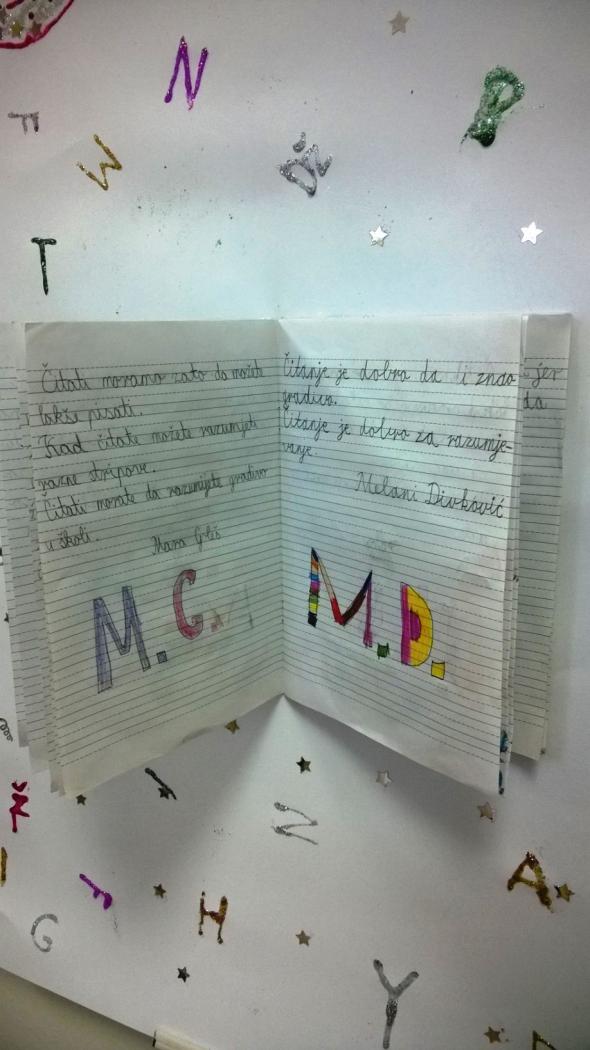 N
P
F
W
Dž
T
Čitati moramo zato da možete
lakše pisati.
Kad čitate možete razumjeti
razne stripove.
Čitati morate da razumijete gradivo
u školi.
Mara Grliš
M. G.
Čitanje je dobro da li znao
gradivo.
Čitanje je dobro za razumje-
vanje.
Melani Divković
M. D.
jer
da
Ž
I
N
A
F
H
G
Y